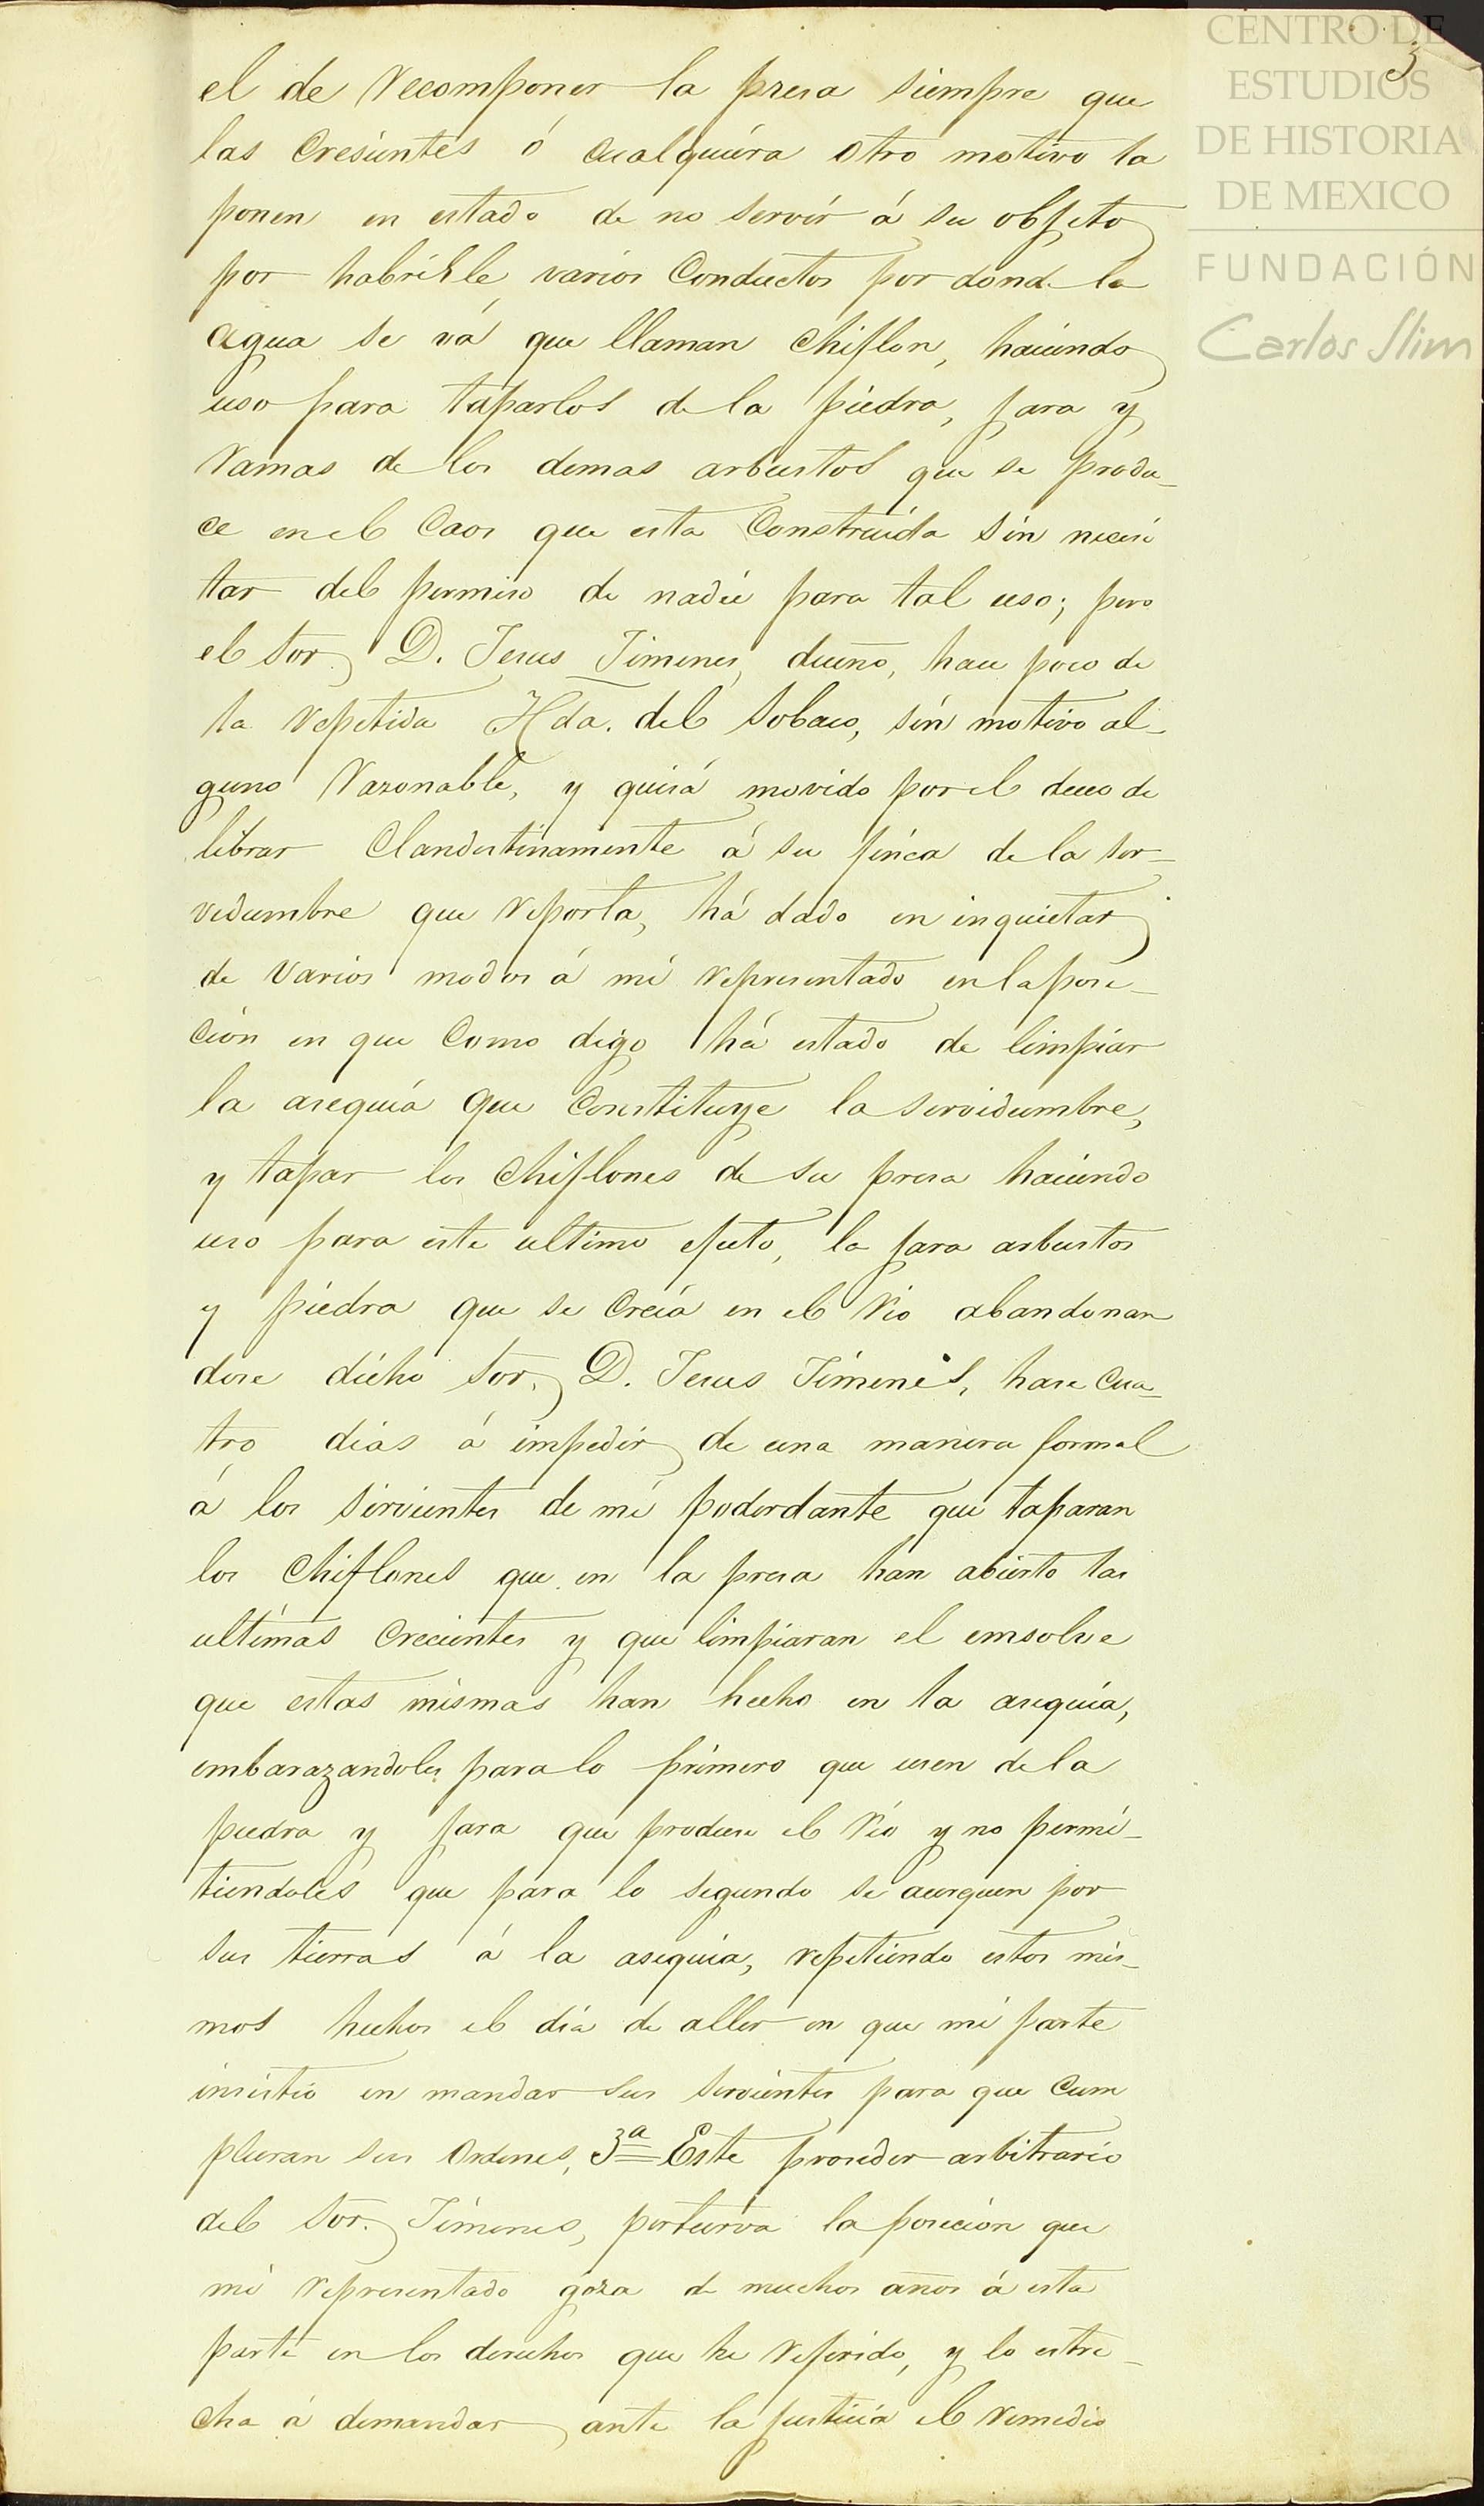 CENTRO DE
ESTUDIOS
DE HISTORIA
DE MEXICO
FUNDACIÓN
Carlos Slim
3
el de recomponer la presa siempre que
las Cresientes ó cualquiera otro motivo la
ponen en estado de no servir á su objeto
por habrirle varios Conductos por donde la
agua se vá que llaman chiflon, haciendo
uso para taparlos de la piedra, jara y
ramas de los demas arbustos que se produ_
ce en el Caos que esta Construida sin necesi
tar del permiso de nadie para tal uso; pero
el Sor. D. Jesus Jimenes, dueño, hace poco de
la repetida Hda. del Sobaco, sin motivo al_
guno razonable, y quisá movido por el deceo de
librar Clandestinamente á su finca de la ser_
vidumbre que reporta, há dado en inquietar
de varios modos á mi representado en la pose_
cion en que Como digo há estado de limpiar
la asequia que Constituye la servidumbre,
y tapar los chiflones de su presa haciendo
uso para este ultimo efecto, la jara arbustos
y piedra que se Crecía en el rio abandonan
dose dicho Sor. D. Jesus Jimenes, hase cua_
tro dias á impedir de una manera formal
á los sirvientes de mi poderdante que taparan
los chiflones que en la presa han abierto las
ultimas Crecientes y que limpiaran el ensolve
que estas mismas han hecho en la asequia,
embarazandoles para lo primero que usen de la
piedra y jara que produce el rio y no permi_
tiendoles que para lo segundo se acerquen por
sus tierras á la asequia, repitiendo estos mis_
mos hechos el dia de aller en que mi parte
insistió en mandar sus sirvientes para que Cum
plieran sus Ordenes. 3ª Este proseder arbitrario
del Sor. Jimenes, perturva la posecion que
mi representado goza de muchos años á esta
parte en los derechos que he referido, y lo estre_
cha á demandar ante la justicia el remedio